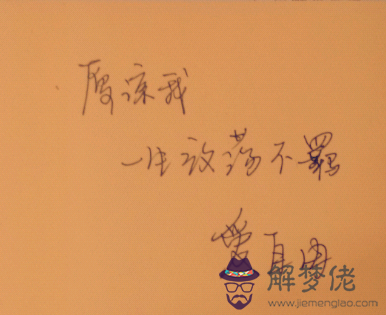 原谅我
一生放荡不羁
爱自由
解梦佬
www.jiemenglao.com